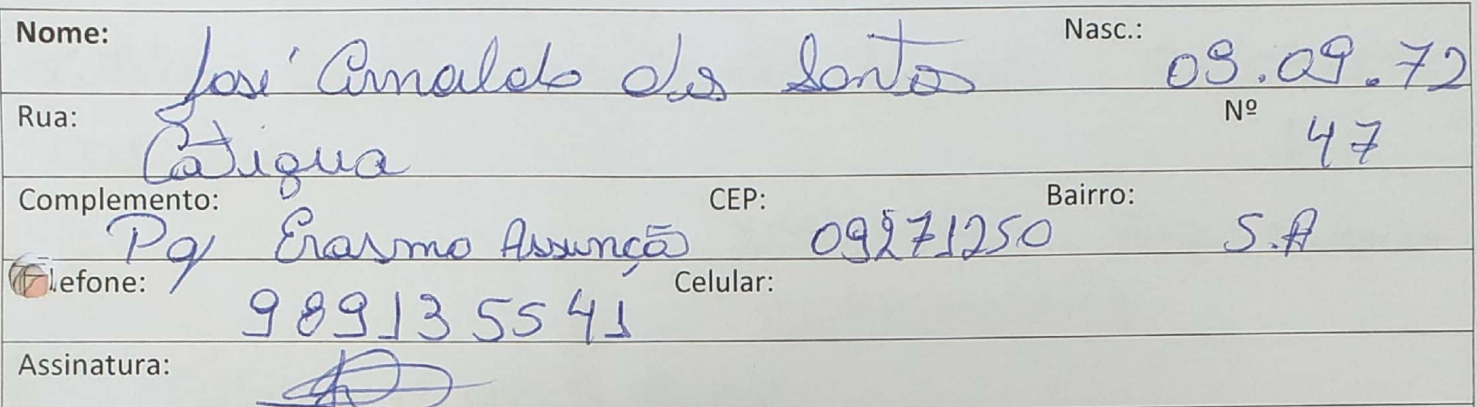 Nome: José Arnaldo dos Santos Nasc.: 09.09.72
Rua: Catigua Nº 47
Complemento: Pq Erasmo Assunção CEP: 09271250 Bairro: S.A
lefone: 989135541 Celular:
Assinatura: